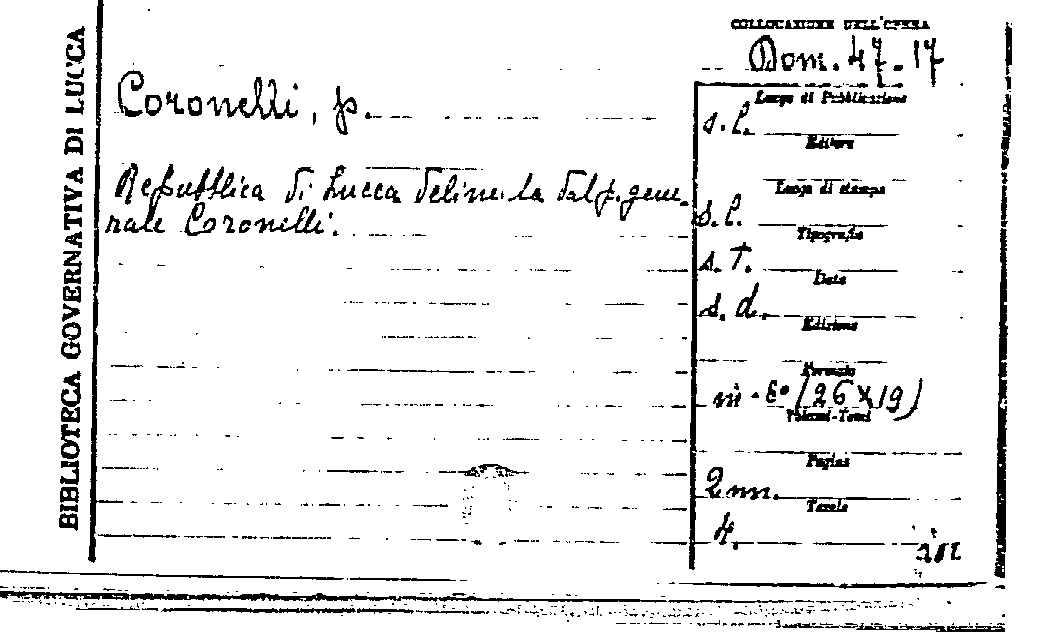 BIBLIOTECA GOVERNATIVA DI LUCCA
COLLOCAZIONE DELL'OPERA
Dom. 47-17
Coronelli, p.
Repubblica di Lucca delineata dal p. gene-
rale Coronelli.
Luogo di Pubblicazione
s. l.
Editore
Luogo di stampa
s. l.
Tipografia
s. t.
Data
s. d.
Edizione
Formato
in-8° (26x19)
Volumi-Tomi
Pagine
2 nn.
Tavole
4.